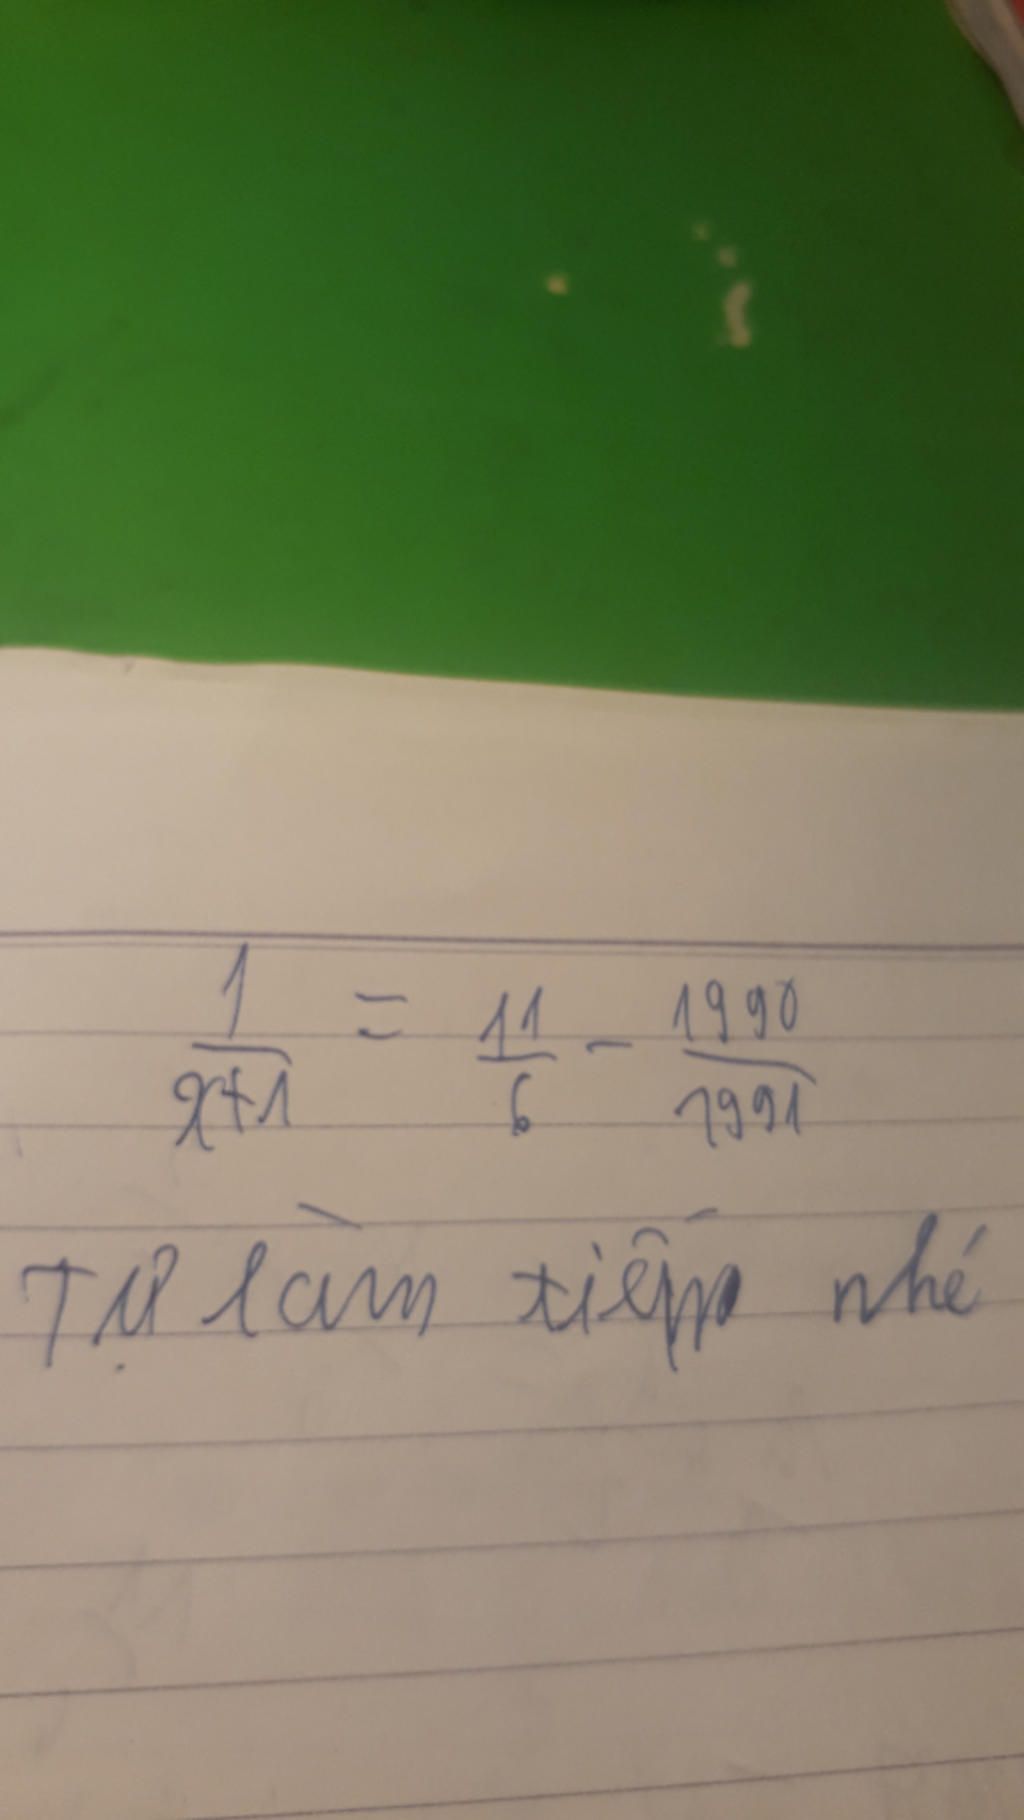 1/x+1 = 11/6 - 1990/1991
Tự làm tiếp nhé